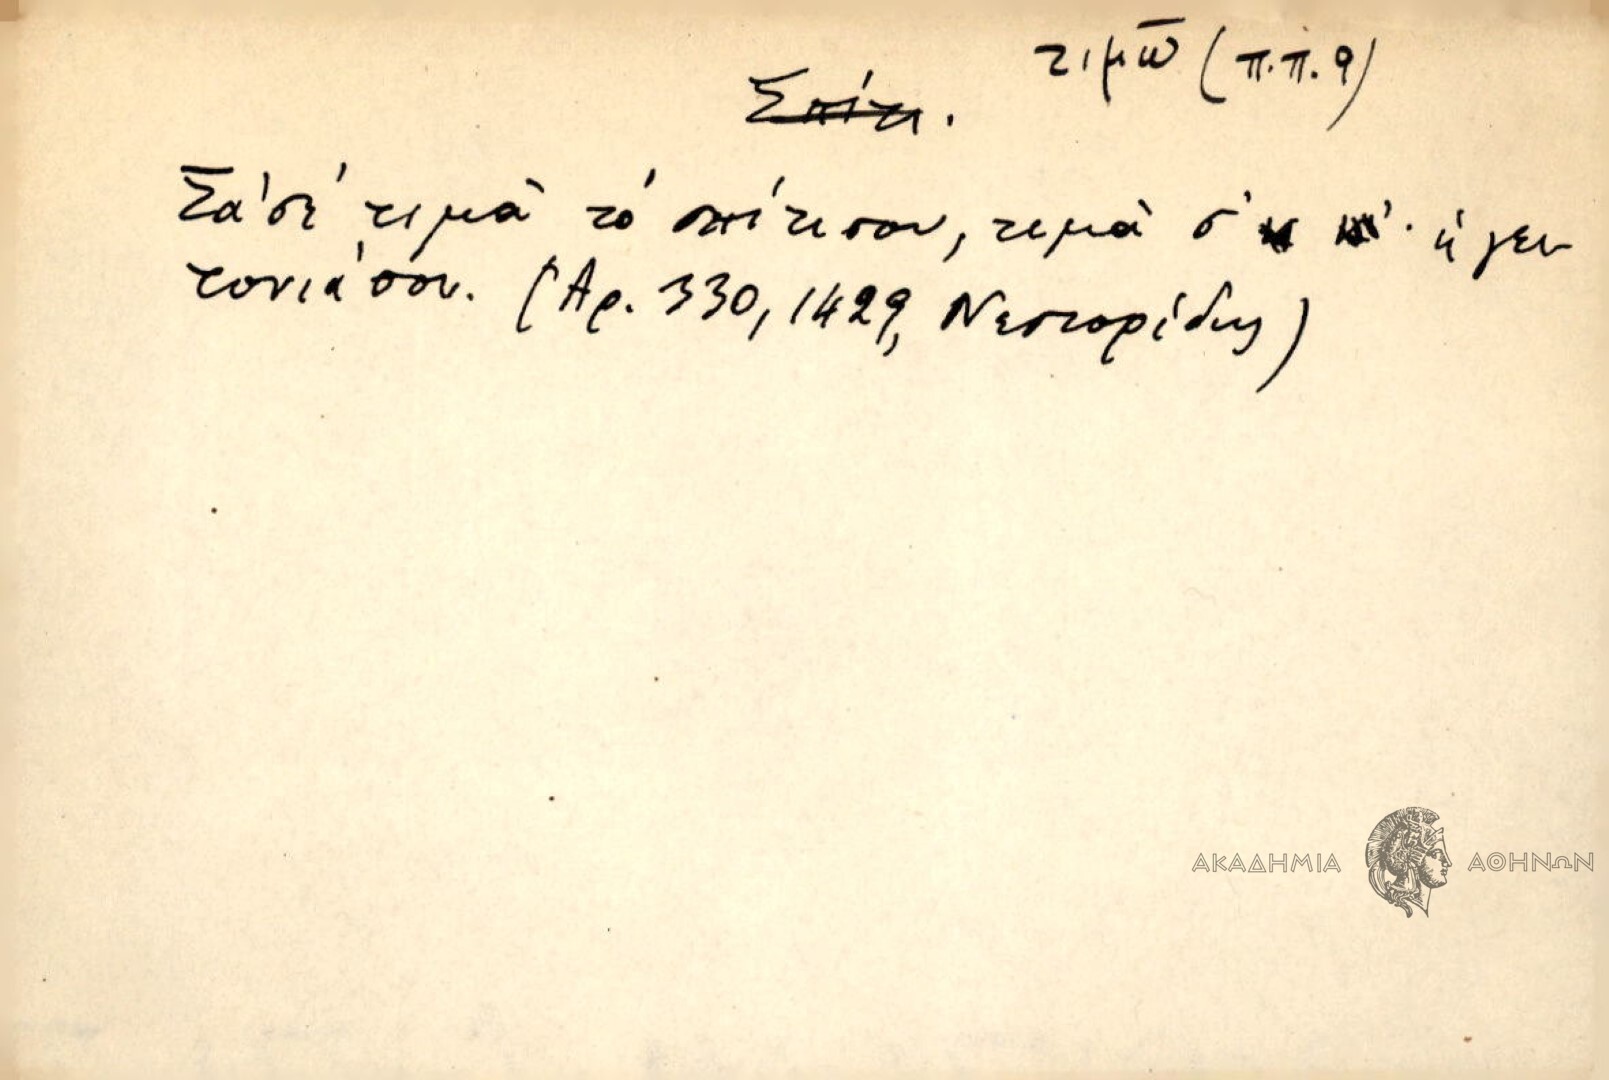 τιμῶ (π.π. 9)
Σπίτι.
Σὰ σὲ τιμᾷ τὸ σπίτι σου, τιμᾷ σ' ἡ γει
τονιά σου. (Ἀρ. 330, 1429, Νεστορίδης)
ΑΚΑΔΗΜΙΑ ΑΘΗΝΩΝ